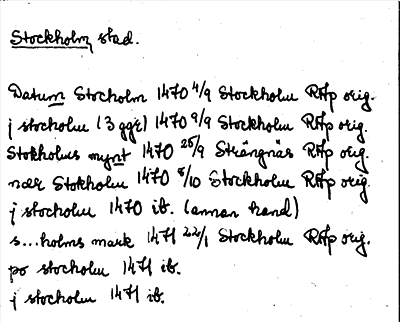 Stockholm, stad.
Datum Stocholm 1470 4/9 Stockholm RAp orig.
j stocholm (3 ggr) 1470 9/9 Stockholm RAp orig.
Stokholms mynt 1470 25/9 Strängnäs RAp orig.
nær Stokholm 1470 8/10 Stockholm RAp orig.
j stocholm 1470 ib. (annan hand)
s...holms mark 1471 22/1 Stockholm RAp orig.
po stocholm 1471 ib.
j stocholm 1471 ib.